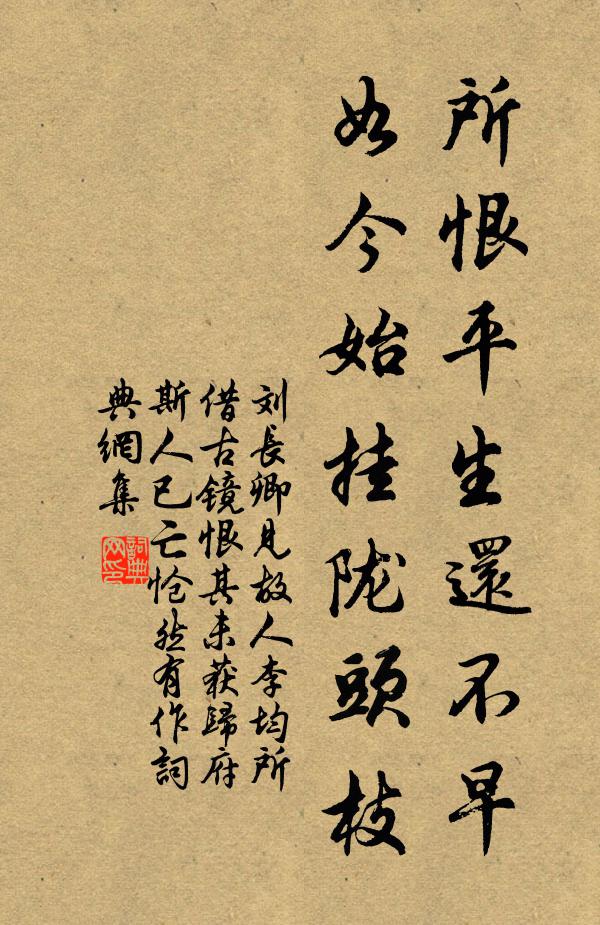 所恨平生還不早
如今始挂陇頭枝
刘長卿見故人李均所
借古镜恨其未获歸府
斯人已亡怆然有作詞
典網集
詞典
网印